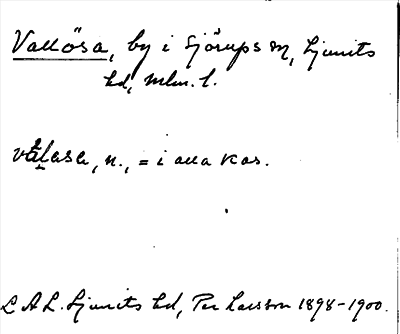 Vallösa, by i Sjörups sn, Ljunits
hd, Mlm. l.
vålasa, n., = i alla kas.
L A L. Ljunits hd, Per Larsson 1898-1900.